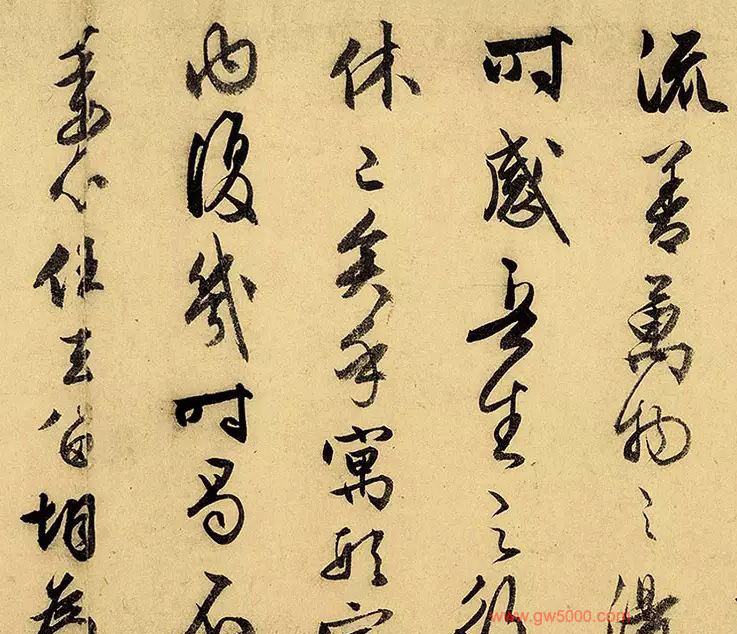 流善萬物之得
時感吾生之行
休已矣乎寓形宇
内復幾時曷不
委心任去留胡為
www.gw5000.com